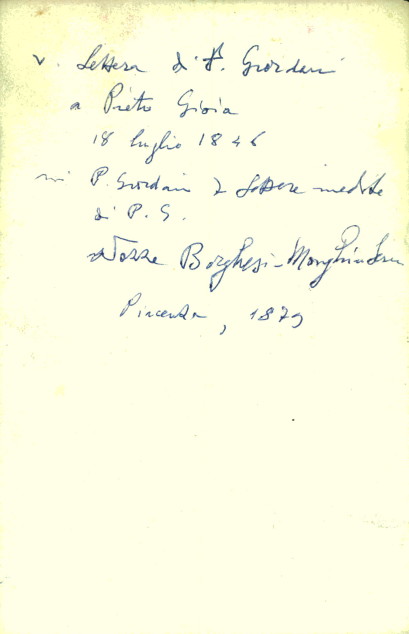 v. Lettera di P. Giordani
a Pietro Gioia
18 luglio 1846
in P. Giordani 2 Lettere inedite
di P. G.
Nozze Borghesi-Morghin
Piacenza, 1879